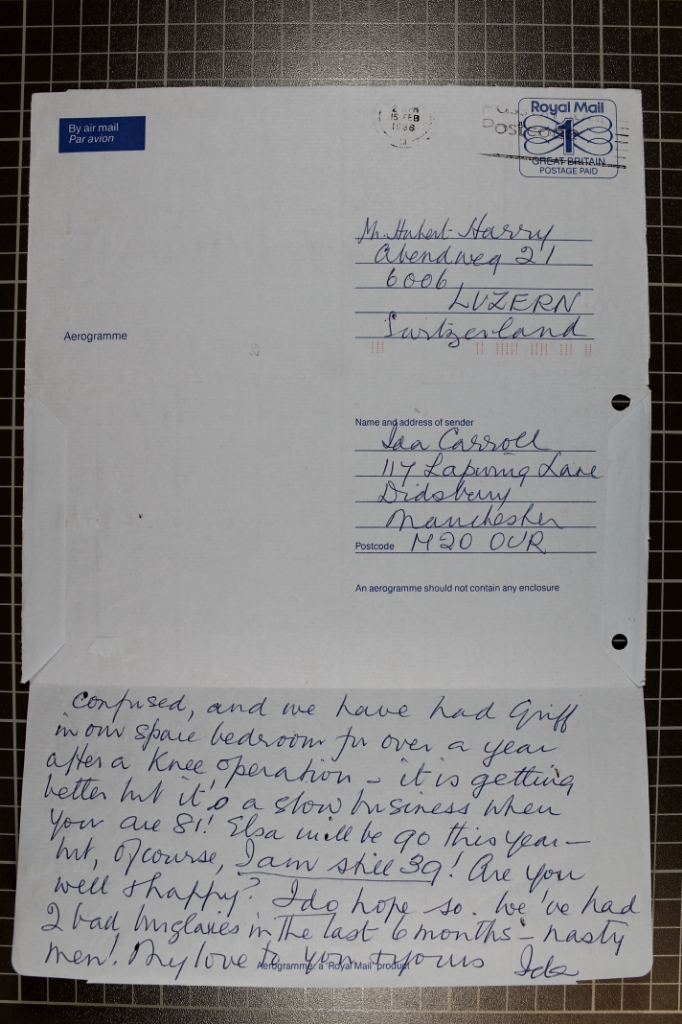 By air mail
Par avion
15 FEB
1988
Postcode
Royal Mail
1
GREAT BRITAIN
POSTAGE PAID
Mr. Hubert Harry
Abendweg 21
6006
LUZERN
Switzerland
Aerogramme
Name and address of sender
Ida Carroll
117 Lapwing Lane
Didsbury
Manchester
Postcode M20 0UR
An aerogramme should not contain any enclosure
confused, and we have had Griff
in our spare bedroom for over a year
after a knee operation – it is getting
better but it's a slow business when
you are 81! Elsa will be 90 this year –
but, of course, I am still 39! Are you
well & happy? I do hope so. We've had
2 bad burglaries in the last 6 months – nasty
men! My love to you & yours Ida
Aerogramme: a 'Royal Mail' product